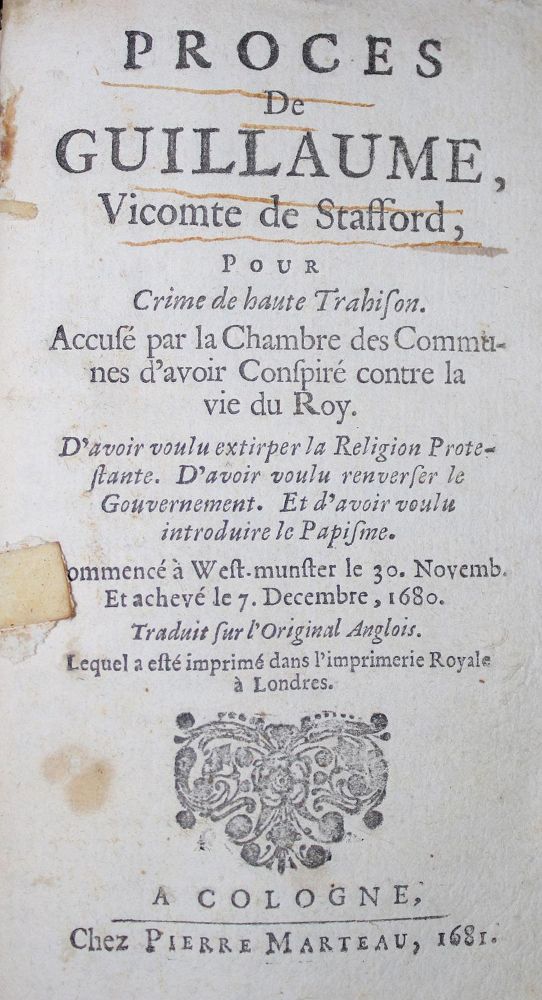 PROCES
De
GUILLAUME,
Vicomte de Stafford,
POUR
Crime de haute Trahiſon.
Accuſé par la Chambre des Commu-
nes d'avoir Conſpiré contre la
vie du Roy.
D'avoir voulu extirper la Religion Prote-
ſtante. D'avoir voulu renverſer le
Gouvernement. Et d'avoir voulu
introduire le Papiſme.
ommencé à Weſt-munſter le 30. Novemb.
Et achevé le 7. Decembre, 1680.
Traduit ſur l'Original Anglois.
Lequel a eſté imprimé dans l'imprimerie Royale
à Londres.
A COLOGNE,
Chez PIERRE MARTEAU, 1681.